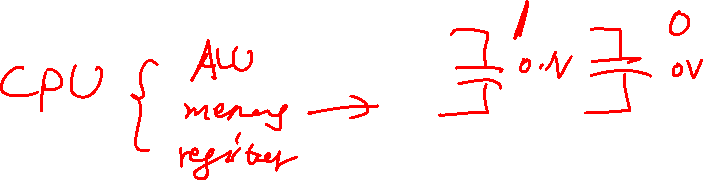 CPU
ALU
memory
register
1
0
0V